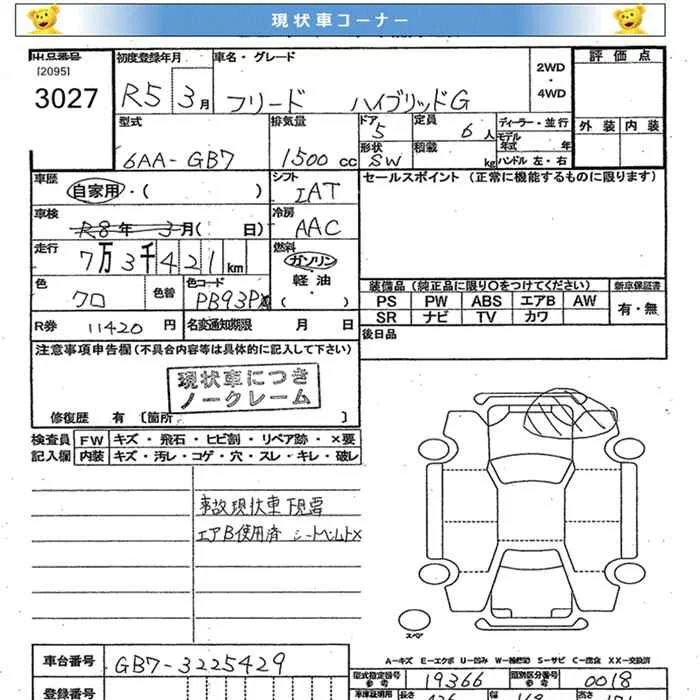 現状車コーナー
出品番号 初度登録年月 車名・グレード 2WD・4WD 評価点
[2095]
3027 R5 3月 フリード ハイブリッドG
型式 排気量 ドア 5 定員 6人 ディーラー・並行 外装 内装
モデル年式 年
6AA-GB7 1500cc 形状 SW 積載 kg ハンドル 左・右
車歴 自家用・( ) シフト IAT セールスポイント (正常に機能するものに限ります)
車検 R8年 3月( 日) 冷房 AAC
走行 7万3千421km 燃料 ガソリン
軽油
( )
色 クロ 色替 色コード PB93PX 装備品 (純正品に限り○をつけてください) 新車保証書
PS PW ABS エアB AW 有・無
SR ナビ TV カワ
R券 11420円 名変通知期限 月 日 後日品
注意事項申告欄(不具合内容等は具体的に記入して下さい)
現状車につき
ノークレーム
修復歴 有 [箇所 ]
検査員 FW キズ・飛石・ヒビ割・リペア跡・×要
記入欄 内装 キズ・汚レ・コゲ・穴・スレ・キレ・破レ
事故現状車 下見要
エアB使用済 シートベルト×
スペア
A-キズ E-エクボ U-凹み W-補修跡 S-サビ C-腐食 XX-交換済
車台番号 GB7-3225429 型式指定番号 参考 19366 類別区分番号 参考 0018
登録番号 車庫証明用 長さ 幅 高さ